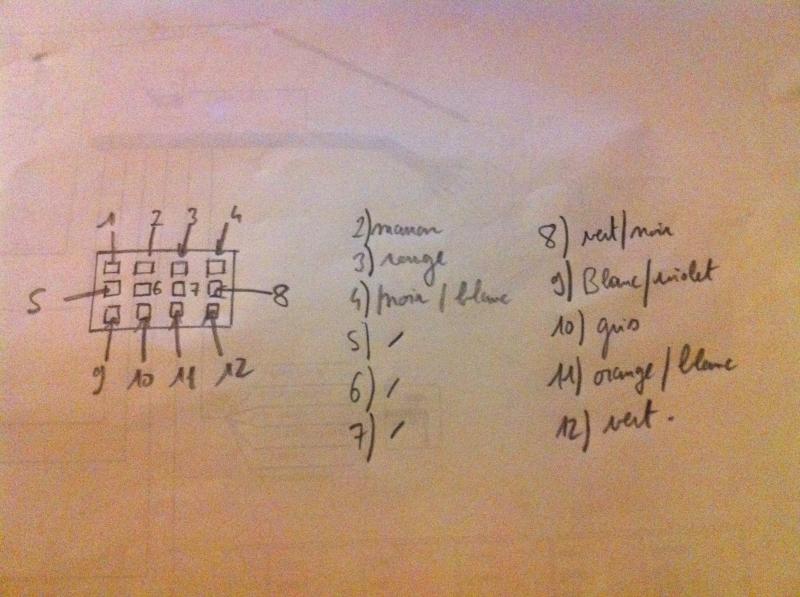 1 2 3 4
5 6 7 8
9 10 11 12
2) marron
3) rouge
4) noir / blanc
5) /
6) /
7) /
8) vert/noir
9) Blanc/violet
10) gris
11) orange/blanc
12) vert.